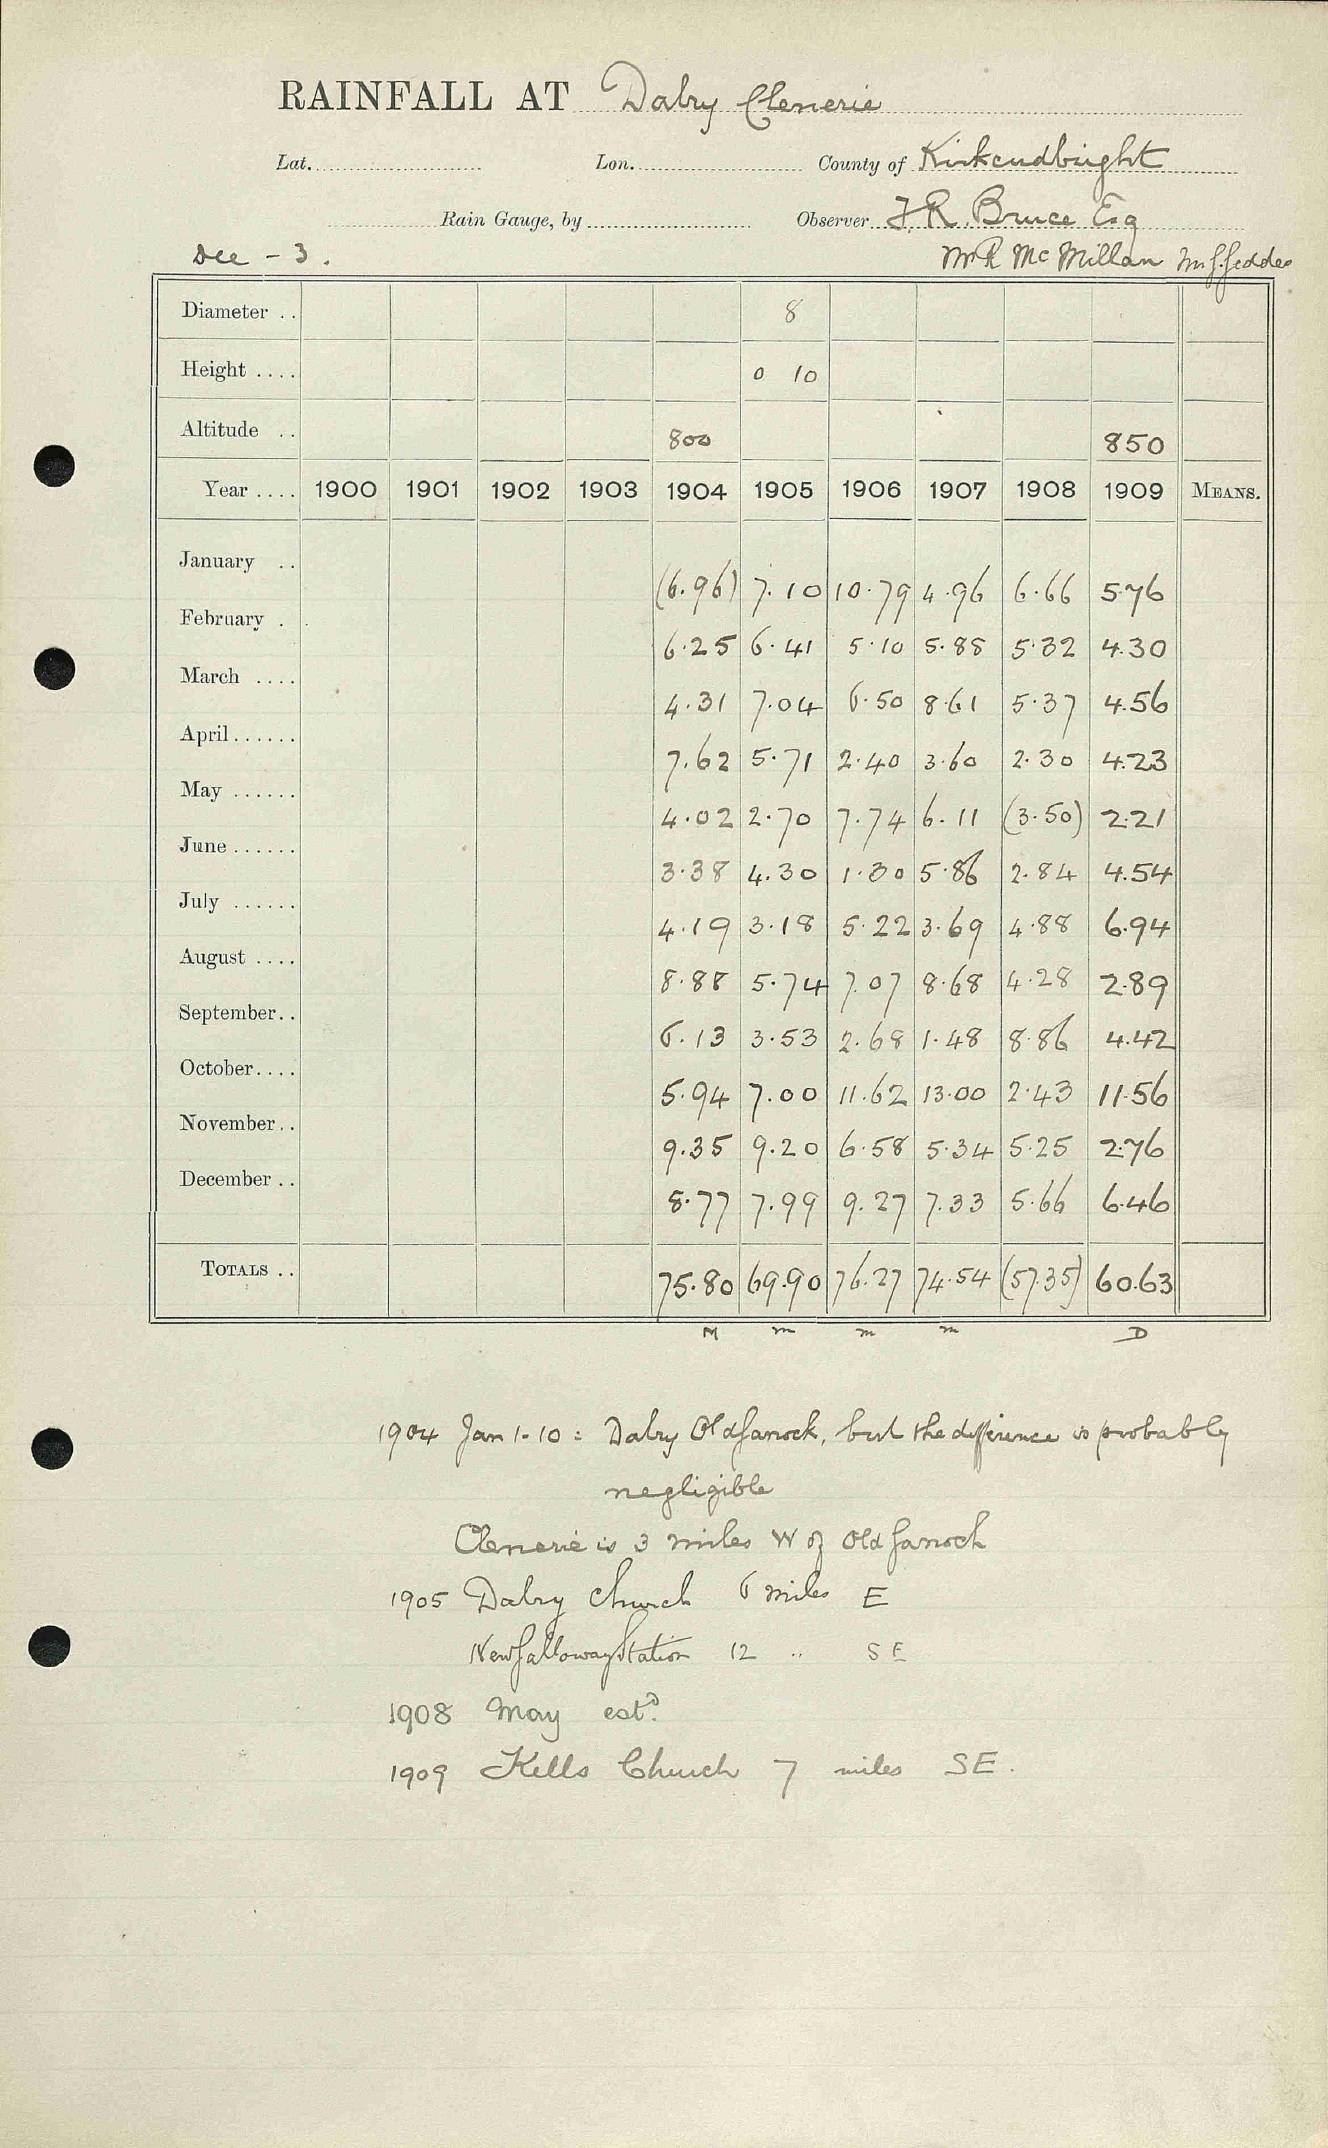 RAINFALL AT Dalry Clenerie
Lat. Lon. County of Kirkcudbright
Rain Gauge, by Observer J.R. Bruce Esq
Dee - 3. Mr R McMillan Mr J. Geddes
Diameter .. 8
Height .... 0 10
Altitude .. 800 850
Year .... 1900 1901 1902 1903 1904 1905 1906 1907 1908 1909 MEANS.
January .. (6.96) 7.10 10.79 4.96 6.66 5.76
February . . 6.25 6.41 5.10 5.88 5.32 4.30
March .... 4.31 7.04 6.50 8.61 5.37 4.56
April...... 7.62 5.71 2.40 3.60 2.30 4.23
May ...... 4.02 2.70 7.74 6.11 (3.50) 2.21
June ...... 3.38 4.30 1.30 5.86 2.84 4.54
July ...... 4.19 3.18 5.22 3.69 4.88 6.94
August .... 8.88 5.74 7.07 8.68 4.28 2.89
September.. 6.13 3.53 2.68 1.48 8.86 4.42
October.... 5.94 7.00 11.62 13.00 2.43 11.56
November.. 9.35 9.20 6.58 5.34 5.25 2.76
December .. 8.77 7.99 9.27 7.33 5.66 6.46
TOTALS .. 75.80 69.90 76.27 74.54 (57.35) 60.63
M m m m D
1904 Jan 1-10: Dalry Old Garroch, but the difference is probably
negligible
Clenerie is 3 miles W of Old Garroch
1905 Dalry Church 6 miles E
New Galloway Station 12 " SE
1908 May estd.
1909 Kells Church 7 miles SE.